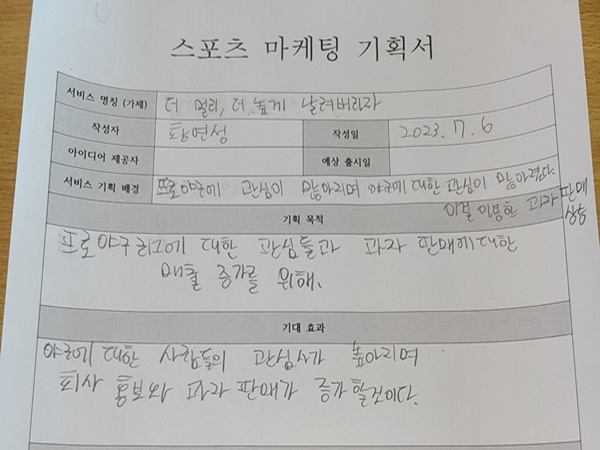 스포츠 마케팅 기획서
서비스 명칭 (가제) 더 멀리, 더 높게 날려버리자
작성자 황연성 작성일 2023. 7. 6
아이디어 제공자 예상 출시일
서비스 기획 배경 프로야구에 관심이 많아지며 야구에 대한 관심이 많아졌다.
이걸 이용한 과자 판매
상승
기획 목적
프로야구 리그에 대한 관심들과 과자 판매에 대한
매출 증가를 위해.
기대 효과
야구에 대한 사람들의 관심사가 높아지며
회사 홍보와 과자 판매가 증가할것이다.